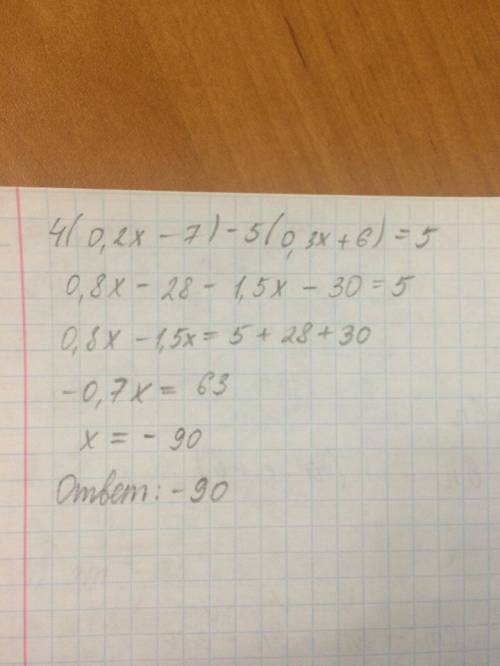 4(0,2x - 7) - 5(0,3x + 6) = 5
0,8x - 28 - 1,5x - 30 = 5
0,8x - 1,5x = 5 + 28 + 30
-0,7x = 63
x = - 90
Ответ: - 90